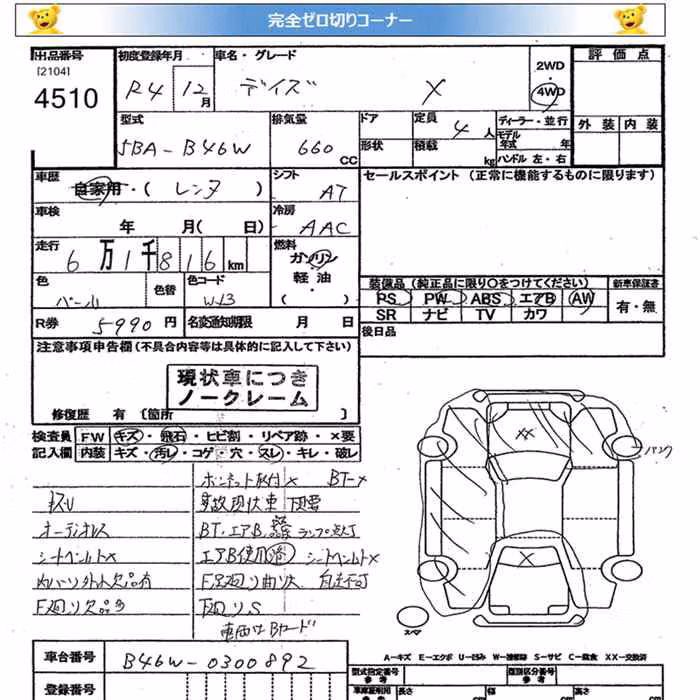 完全ゼロ切りコーナー
出品番号
[2104]
4510
初度登録年月 R4 12月
車名・グレード デイズ X
2WD
4WD
評価点
外装 内装
型式 5BA-B46W
排気量 660 CC
ドア
形状
定員 4人
積載 kg
ディーラー・並行
モデル年式 年
ハンドル 左・右
車歴 自家用・(レンタ)
シフト AT
セールスポイント (正常に機能するものに限ります)
車検 年 月(日)
冷房 AAC
走行 6万1千816km
燃料 ガソリン
軽油
( )
色 パール
色替
色コード W13
装備品 (純正品に限り○をつけてください)
新車保証書
PS PW ABS エアB AW
有・無
SR ナビ TV カワ
R券 5990円
名変通知期限 月 日
後日品
注意事項申告欄 (不具合内容等は具体的に記入して下さい)
現状車につき
ノークレーム
修復歴 有 [箇所 ]
検査員 FW キズ・飛石・ヒビ割・リペア跡・×要
記入欄 内装 キズ・汚レ・コゲ・穴・スレ・キレ・破レ
ボンネット取付× BT×
キズU
事故現状車 下回要
オーディオレス
BT・エアB ランプ点灯
シートベルト×
エアB使用済 シートベルト×
内バリ外レ欠品有
F足廻り曲り大 自走不可
F廻り欠品多
下廻りS
車両状Bロード
パンク
××
×
スマ
A－キズ E－エクボ U－凹み W－補修跡 S－サビ C－腐食 XX－交換済
車台番号 B46W-0300892
型式指定番号 参考
類別区分番号 参考
登録番号
車庫証明用 参考
長さ cm
幅 cm
高さ cm